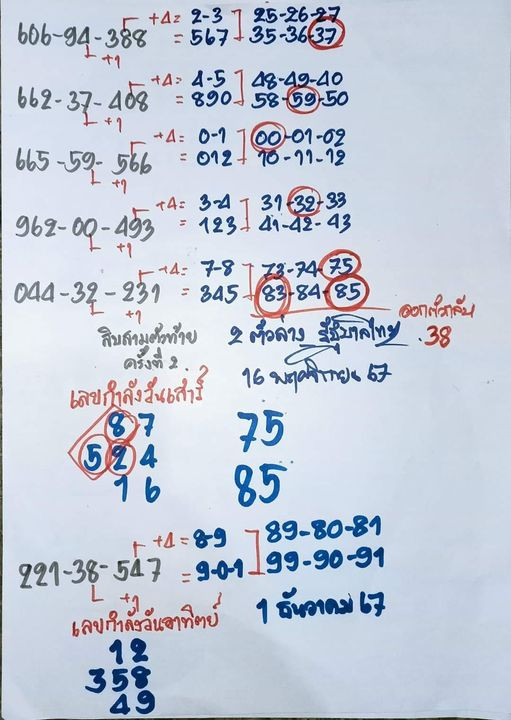 606-94-388 +4= 2-3 25-26-27
+1 = 567 35-36-37
662-37-408 +4= 4-5 48-49-40
+1 = 890 58-59-50
665-59-566 +4= 0-1 00-01-02
+1 = 012 10-11-12
962-00-493 +4= 3-4 31-32-33
+1 = 123 41-42-43
044-32-231 +4= 7-8 73-74-75
+1 = 345 83-84-85
สิบสามตัวท้าย 2 ตัวล่าง รัฐบาลไทย ออกตัวกลับ
ครั้งที่ 2 .38
16 พฤศจิกายน 67
เลขกำลังวันเสาร์
87 75
524
16 85
221-38-547 +4= 8-9 89-80-81
+1 = 9-0-1 99-90-91
เลขกำลังวันอาทิตย์ 1 ธันวาคม 67
12
358
49